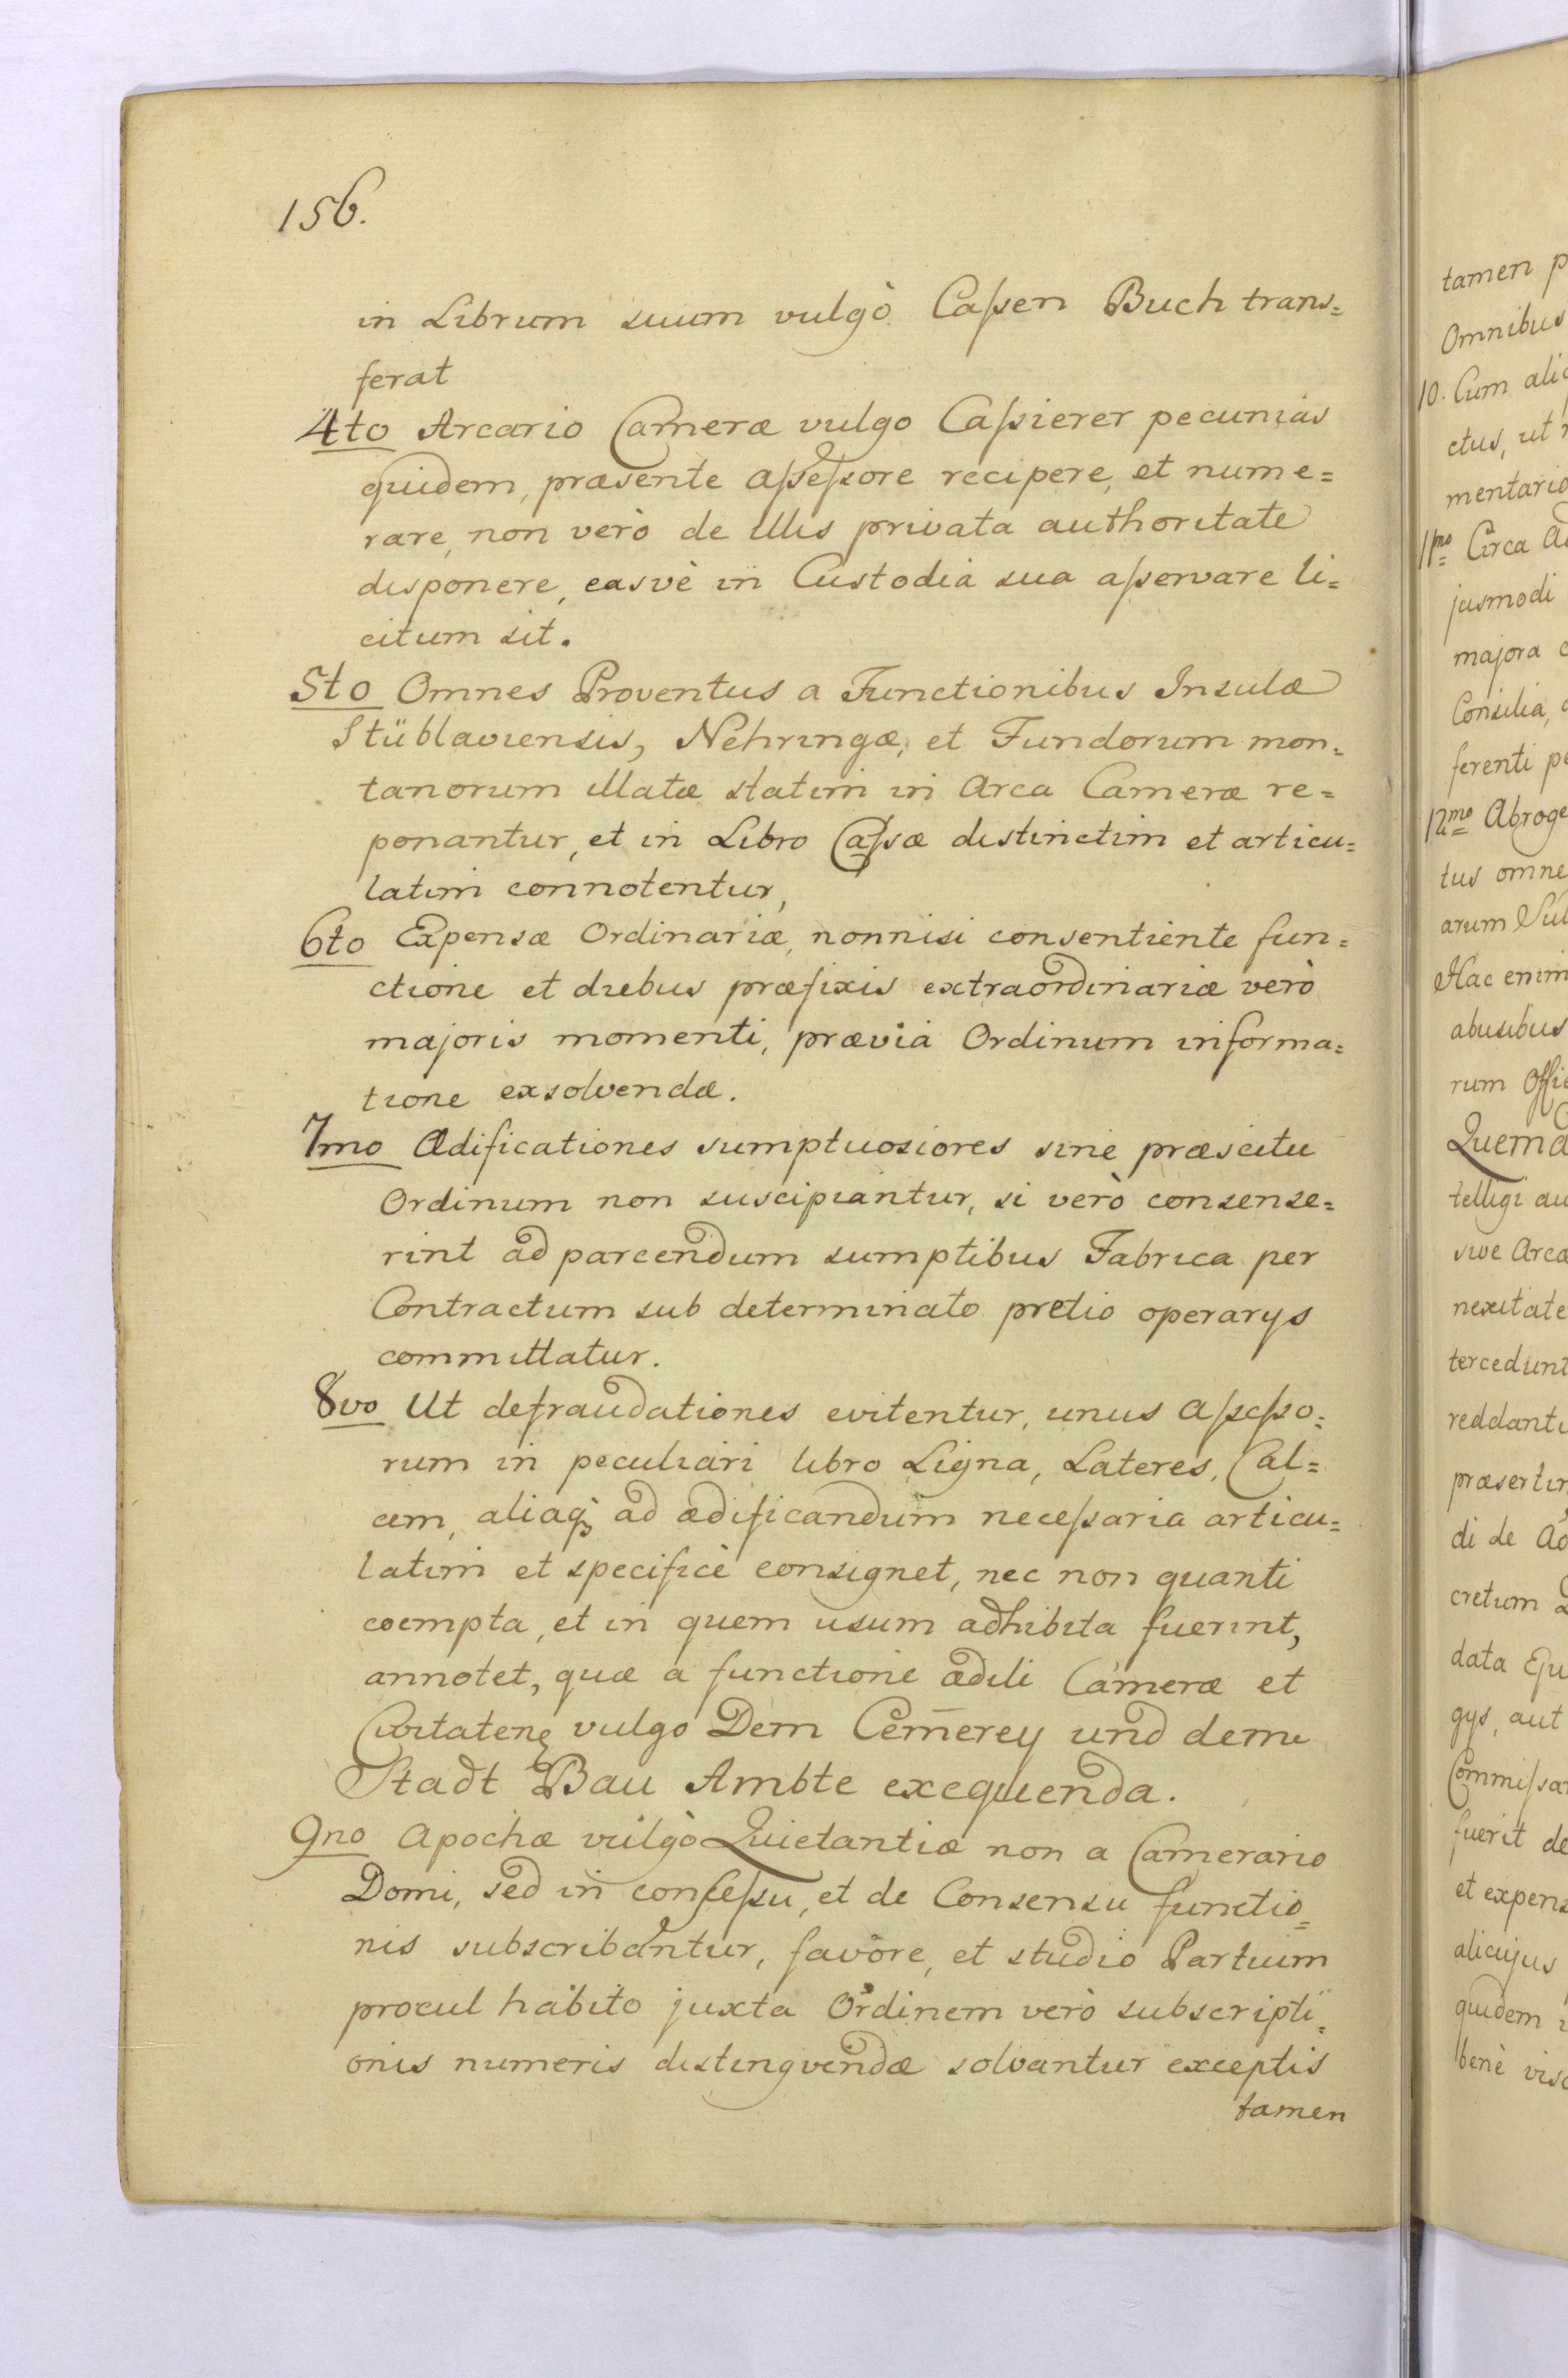 156.
in Librum suum vulgò Caßen Buch trans=
ferat
4to Arcario Cameræ vulgo Caßierer pecunias
quidem, præsente aßeßore recipere, et nume=
rare, non verò de illis privata authoritate
disponere, easvè in Custodia sua aßervare li=
citum sit.
5to Omnes Proventus a Functionibus Insulæ
Stüblaviensis, Nehringæ, et Fundorum mon=
tanorum illatæ statim in Arca Cameræ re=
ponantur, et in Libro Caßæ distinctim et articu=
latim connotentur,
6to Expensæ Ordinariæ, nonnisi consentiente fun=
ctione et diebus præfixis extraordinariæ verò
majoris momenti, prævia Ordinum informa=
tione exsolvendæ.
7mo Ædificationes sumptuosiores sine præscitu
Ordinum non suscipiantur, si verò consense=
rint ad parcendum sumptibus Fabrica per
Contractum sub determinato pretio operarys
committatur.
8vo Ut defraudationes evitentur, unus Aßeßo=
rum in peculiari libro Ligna, Lateres, Cal=
cem, aliaq3 ad ædificandum neceßaria articu=
latim et specificè consignet, nec non quanti
coempta, et in quem usum adhibita fuerint,
annotet, quæ a functione ædili Cameræ et
Civitatens vulgo Dem Cem̄erey und dem
Stadt Bau Ambte exequenda.
9no Apochæ vulgò Quietantiæ non a Camerario
Domi, sed in conseßu, et de Consensu functio=
nis subscribantur, favore, et studio Partium
procul habito juxta Ordinem verò subscripti=
onis numeris distingvendæ solvantur exceptis
tamen
tamen
Omnibus
10. Cum
ctus, ut
11mo Circa
jusmodi
majora
Consilia,
ferenti
12mo
tus
arum
Hac enim
abusibus
rum
telligi
sive
præsertim
di de
cretum
data
gys, aut
fuerit
et
alicujus
quidem
benè